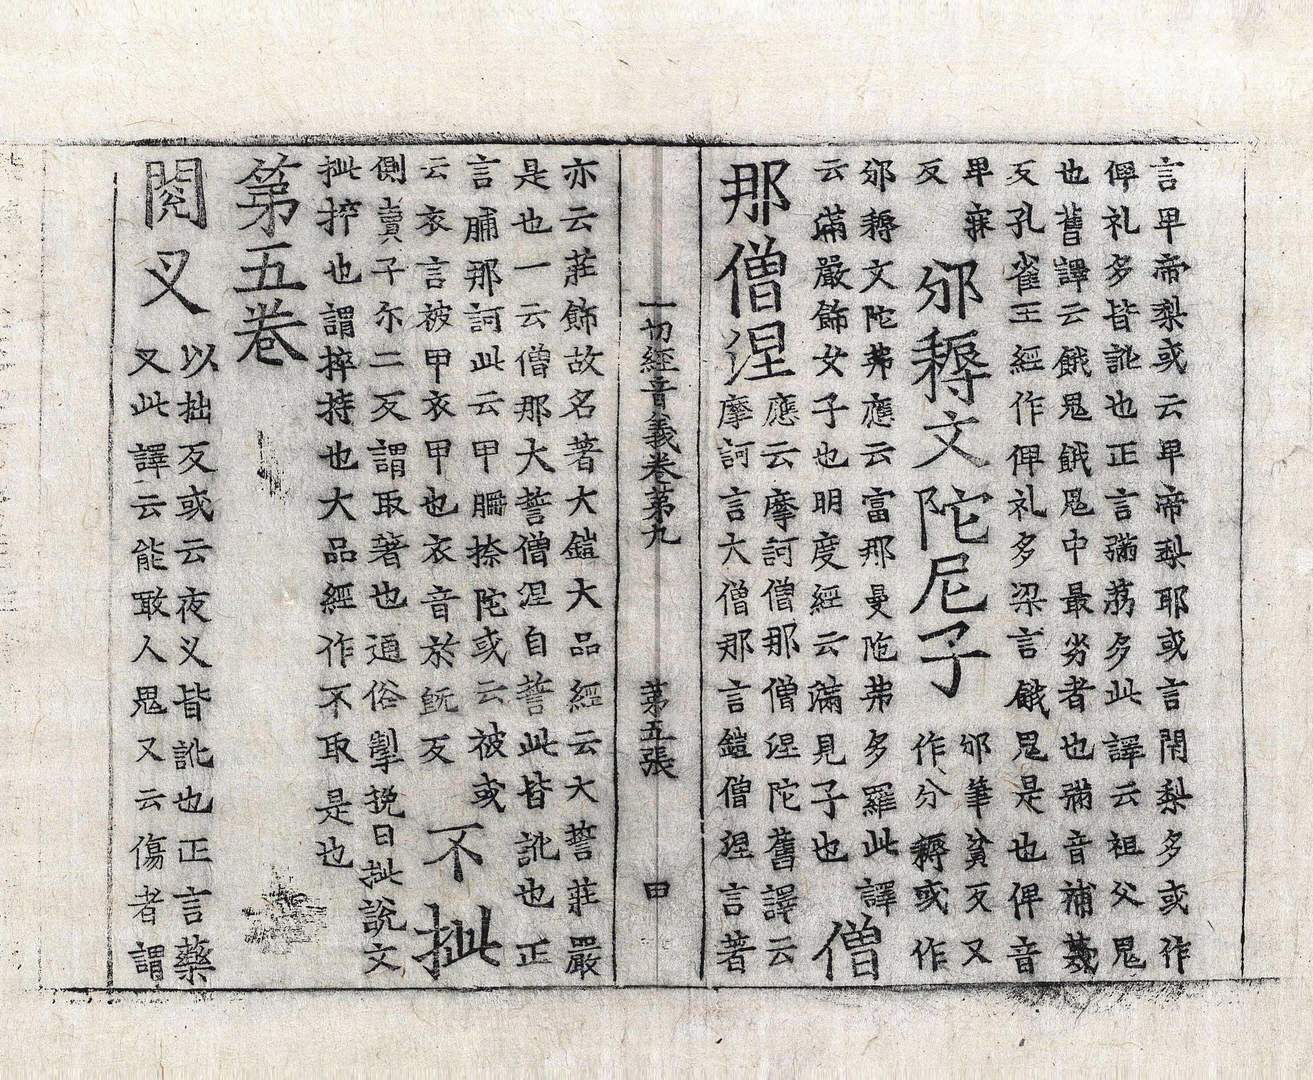 言卑帝梨或云卑帝䴻耶或言閇梨多或作
俾礼多皆訛也正言䉲荔多此譯云祖父鬼
也舊譯云餓鬼餓鬼中最劣者也䉲音補蔑
反孔雀王經作俾礼多梁言餓鬼是也俾音
卑寐
反
邠耨文陀尼子
邠筆貧反又
作分耨或作
邠耨文陀弗應云富那曼陁弗多羅此譯
云滿嚴飾女子也明度經云滿見子也
僧
那僧涅
應云摩訶僧那僧涅陀舊譯云
摩訶言大僧那言鎧僧涅言著
一切經音義卷第九
第五張
甲
亦云莊飾故名著大鎧大品經云大誓莊嚴
是也一云僧那大誓僧涅自誓此皆訛也正
言䏽那訶此云甲䏽捺陀或云被或
云衣言被甲衣甲也衣音於旣反
不
𢱧
側賣子尔二反謂取著也通俗掣挽曰𢱧說文
𢱧捽也謂捽持也大品經作不取是也
第五卷
閱叉
以拙反或云夜叉皆訛也正言藥
叉此譯云能噉人鬼又云傷者謂